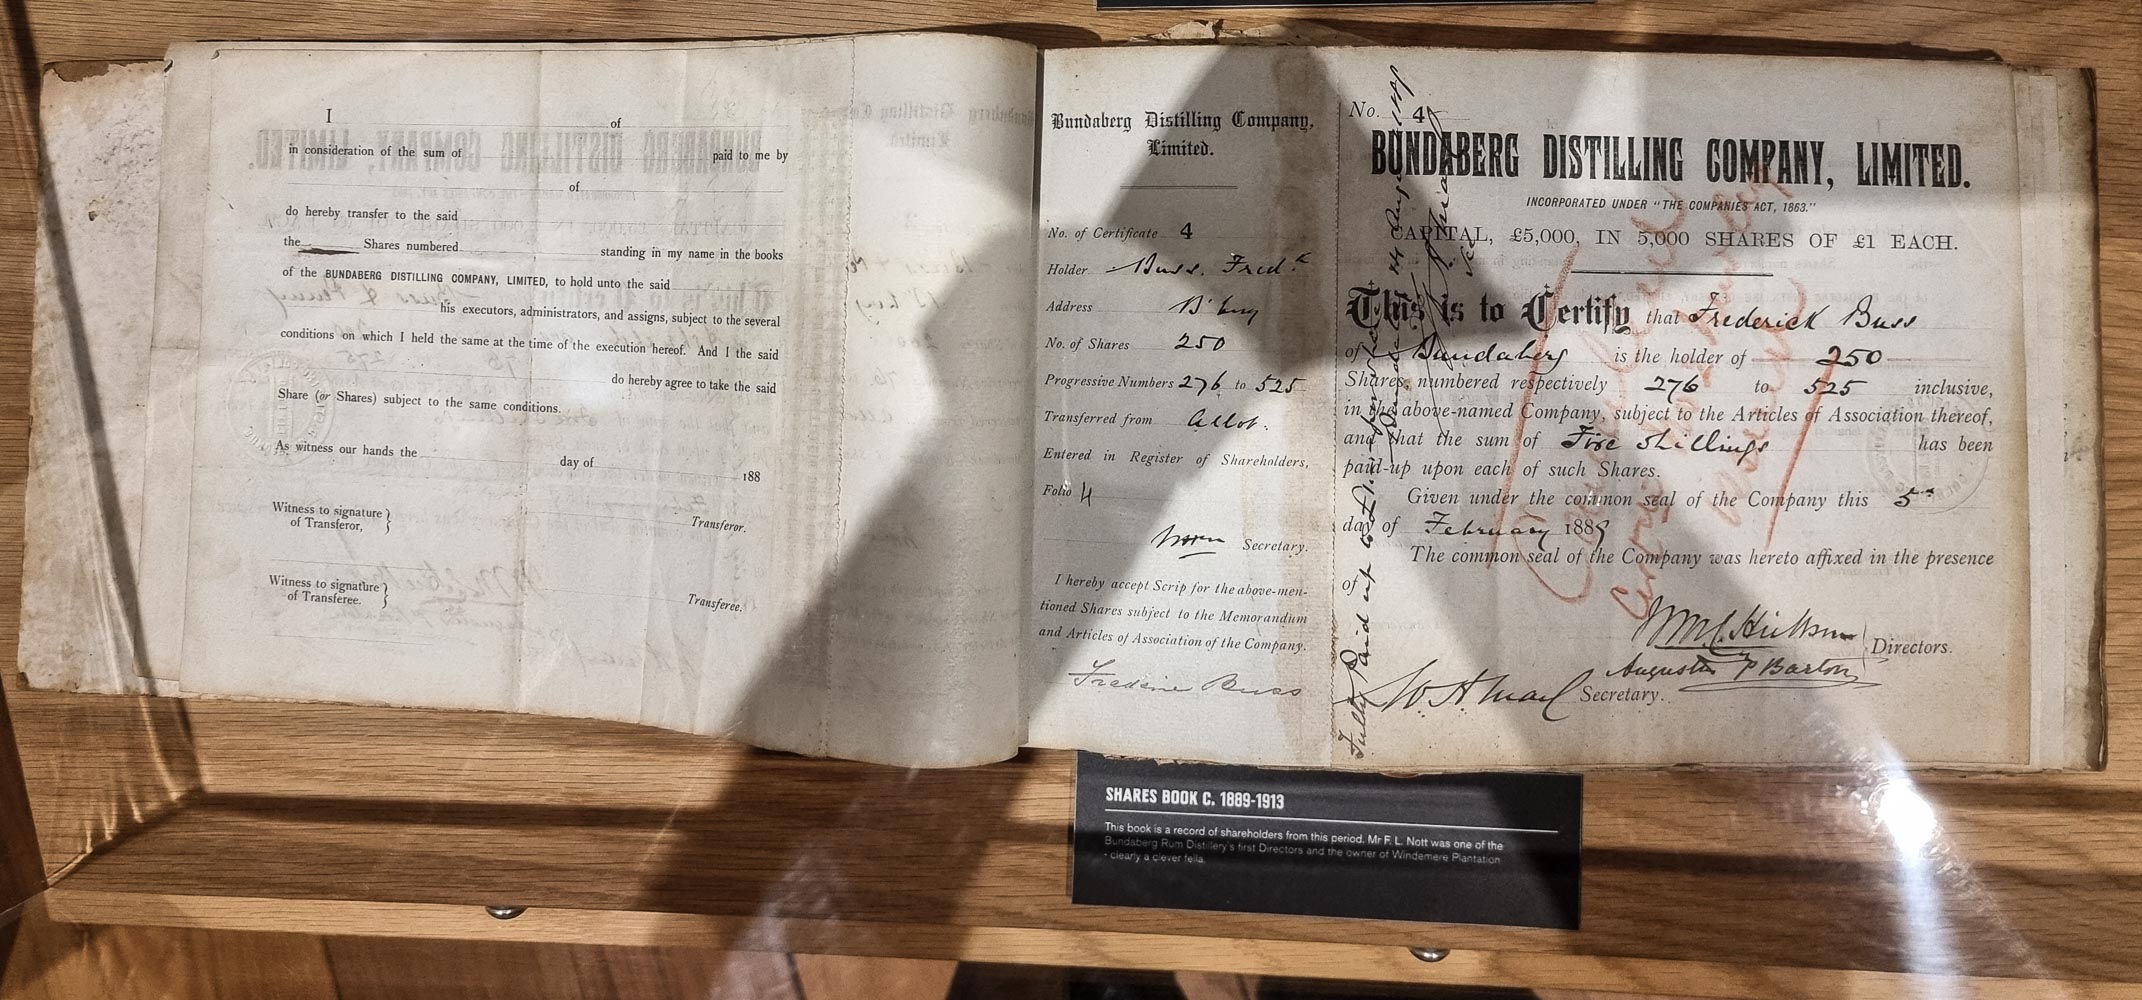 I of
in consideration of the sum of paid to me by
of
do hereby transfer to the said
the Shares numbered standing in my name in the books
of the BUNDABERG DISTILLING COMPANY, LIMITED, to hold unto the said
his executors, administrators, and assigns, subject to the several
conditions on which I held the same at the time of the execution hereof. And I the said
do hereby agree to take the said
Share (or Shares) subject to the same conditions.
As witness our hands the day of 188
Witness to signature
of Transferor, } Transferor.
Witness to signature
of Transferee. } Transferee.
Bundaberg Distilling Company,
Limited.
No. of Certificate 4
Holder Buss. Fredk
Address B'berg
No. of Shares 250
Progressive Numbers 276 to 525
Transferred from Allot.
Entered in Register of Shareholders,
Folio 4
Secretary.
I hereby accept Scrip for the above-men-
tioned Shares subject to the Memorandum
and Articles of Association of the Company.
Frederic Buss
No. 4
BUNDABERG DISTILLING COMPANY, LIMITED.
INCORPORATED UNDER "THE COMPANIES ACT, 1863."
CAPITAL, £5,000, IN 5,000 SHARES OF £1 EACH.
This is to Certify that Frederick Buss
of Bundaberg is the holder of 250
Shares, numbered respectively 276 to 525 inclusive,
in the above-named Company, subject to the Articles of Association thereof,
and that the sum of Five shillings has been
paid-up upon each of such Shares.
Given under the common seal of the Company this 5th
day of February 1889
The common seal of the Company was hereto affixed in the presence
of
Directors.
Augustus P Barton
Secretary.
Fully Paid up to
SHARES BOOK C. 1889-1913
This book is a record of shareholders from this period. Mr F. L. Nott was one of the
Bundaberg Rum Distillery's first Directors and the owner of Windemere Plantation
- clearly a clever fella.